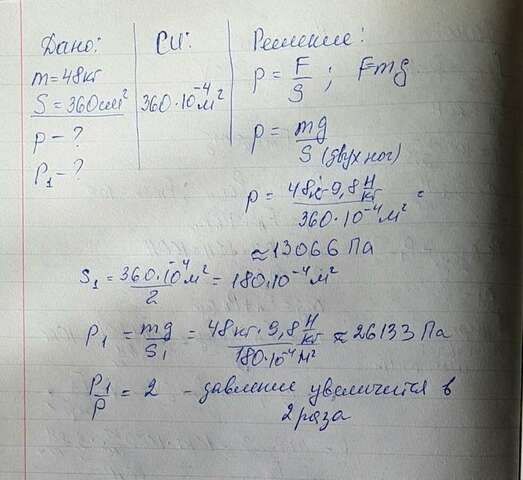 Дано:
m=48кг
S=360см²
p-?
p₁-?
СИ:
360·10⁻⁴м²
Решение:
p = F/S ; F=mg
p = mg/S (двух ног)
p = 48кг·9,8 Н/кг / 360·10⁻⁴м² =
≈13066 Па
S₁ = 360·10⁻⁴м²/2 = 180·10⁻⁴м²
P₁ = mg/S₁ = 48кг·9,8 Н/кг / 180·10⁻⁴м² ≈ 26133 Па
P₁/P = 2 - давление увеличится в
2 раза